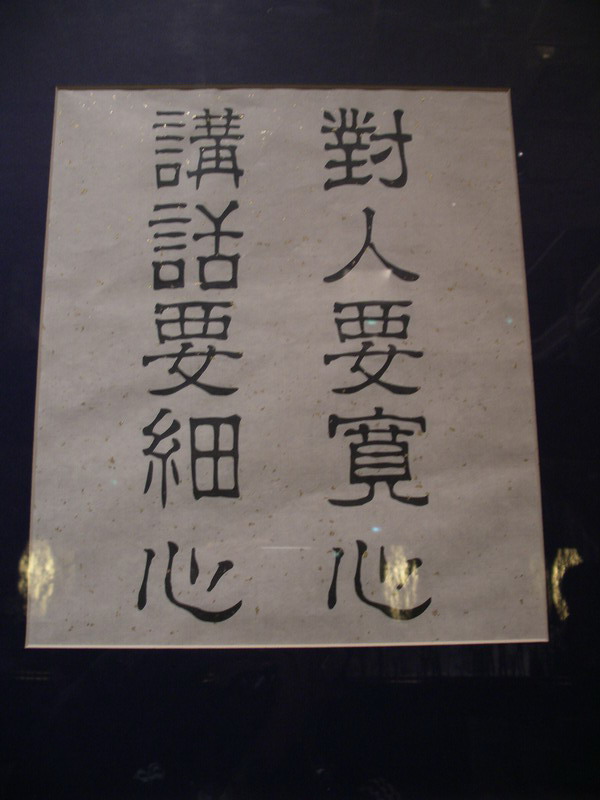 對人要寬心
講話要細心